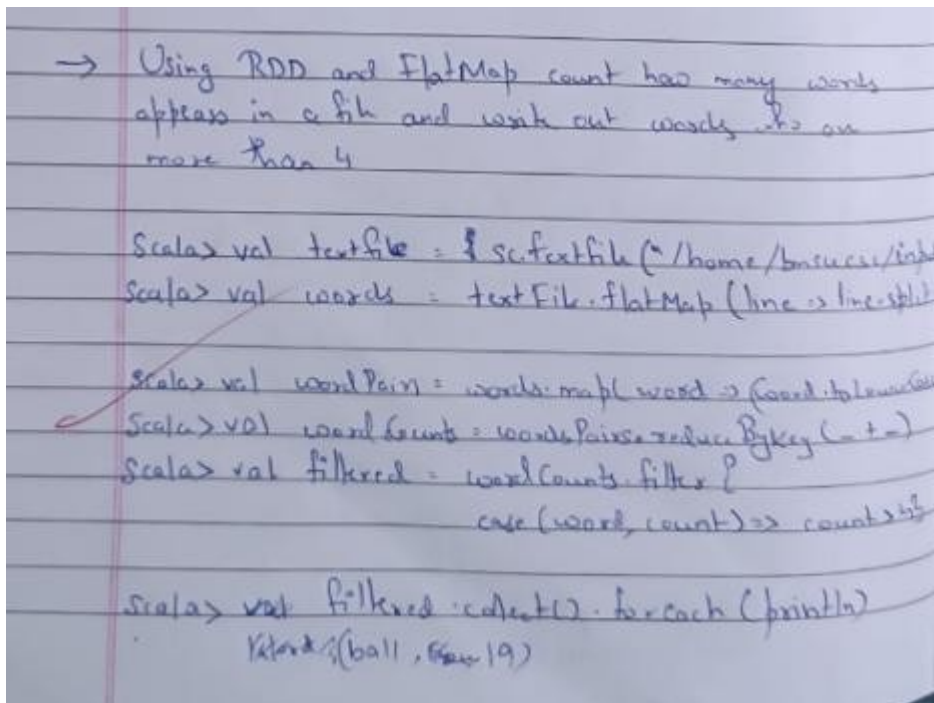 → Using RDD and FlatMap count how many words
appears in a file and write out words who on
more than 4
Scala> val textfile = sc.textfile("/home/bmsucse/inp
Scala> val words = textFile.flatMap(line => line.split
Scala> val wordPair = words.map(word => (word.toLowerCase
Scala> val wordCounts = wordsPairs.reduceByKey(_+_)
Scala> val filtered = wordCounts.filter {
case (word, count) => count > 4}
Scala> val filtered.collect().foreach(println)
(ball, 19)